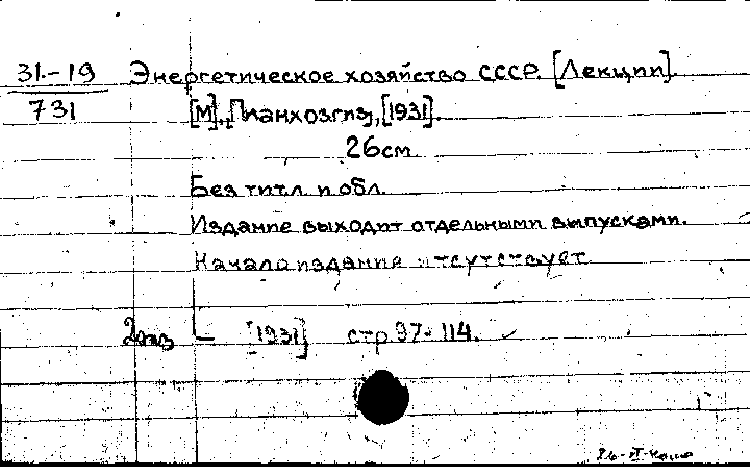 31.-19 Энергетическое хозяйство СССР. [Лекции].
731 [М]., [Планхозгиз, [1931].
26см
Без титл. и обл.
Издание выходит отдельными выпусками.
Начало издания отсутствует.
2экз — [1931] стр. 97-114.